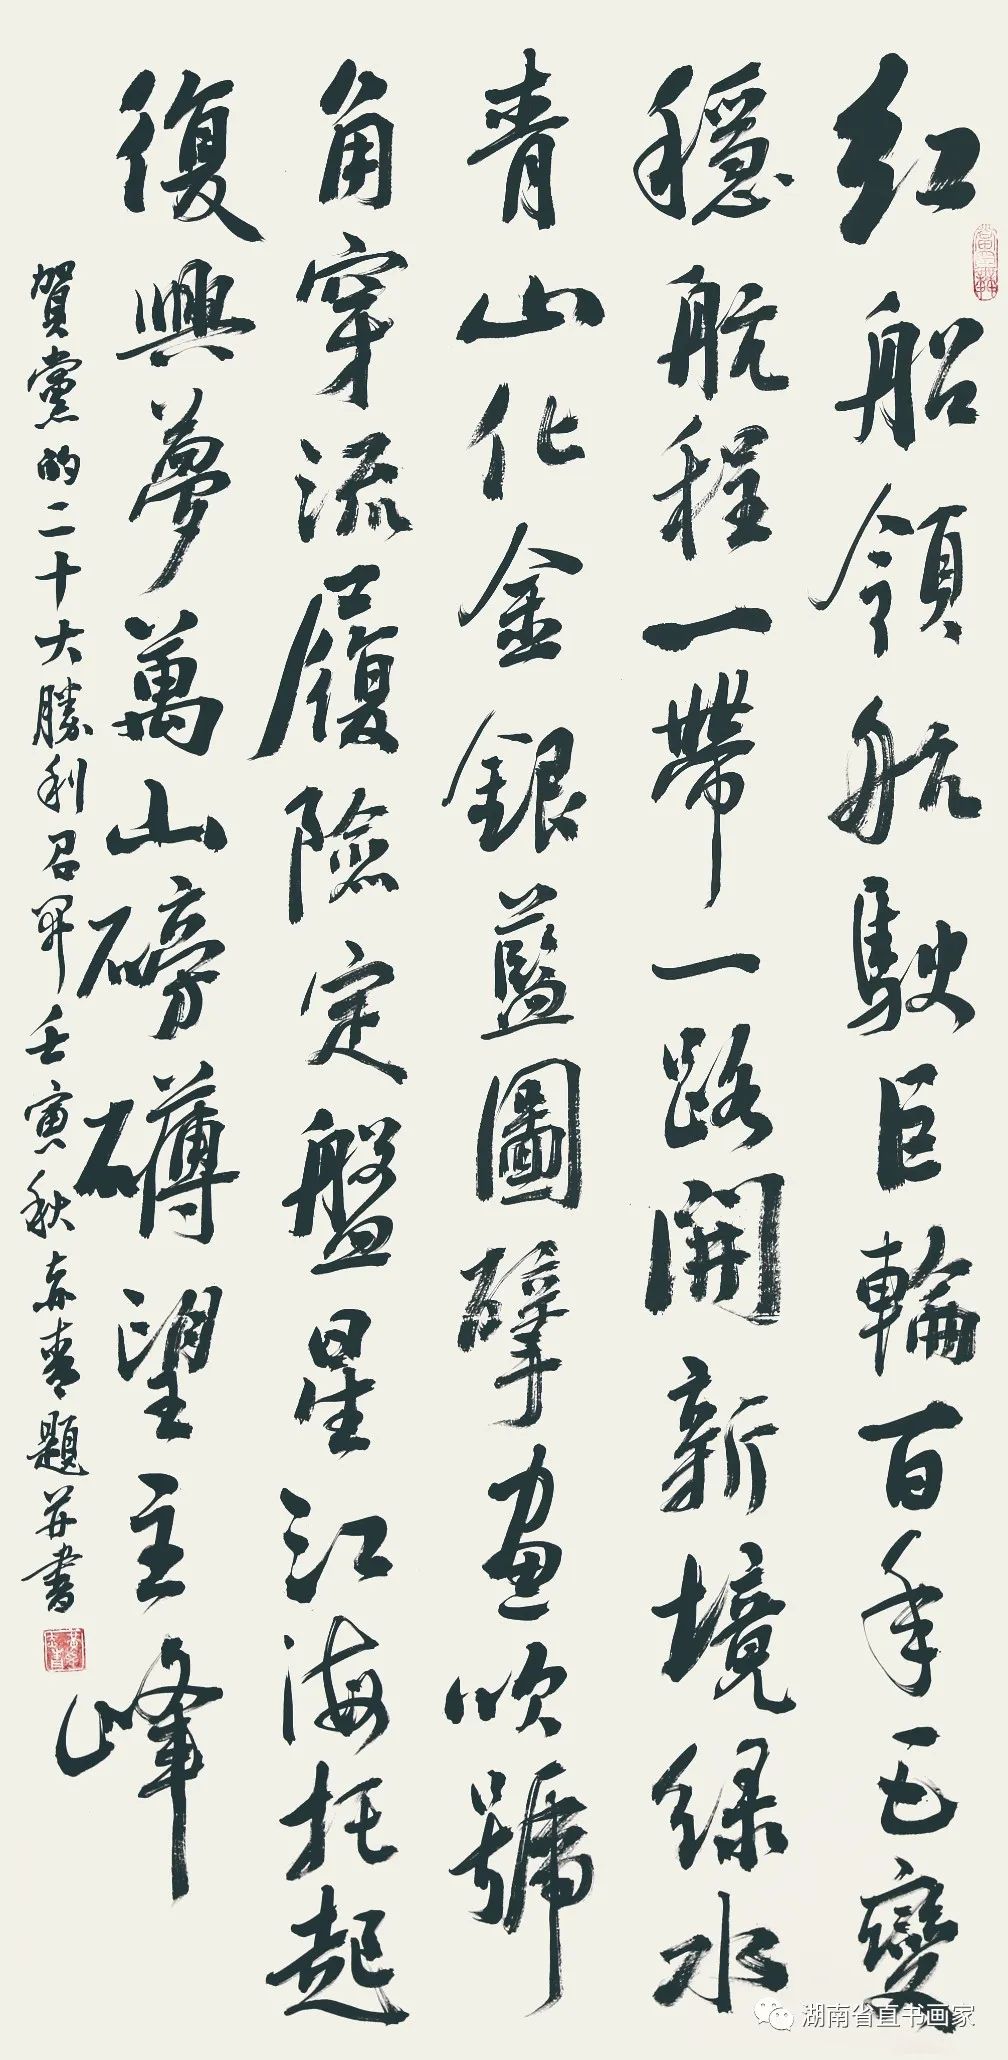 红船領航駛巨輪百年已變
穩航程一帶一路開新境绿水
青山化金銀藍圖擘画吹號
角穿流履險定盤星江海托起
復興夢萬山磅礴望主峰
賀黨的二十大勝利召開壬寅秋題并書
湖南省直书画家